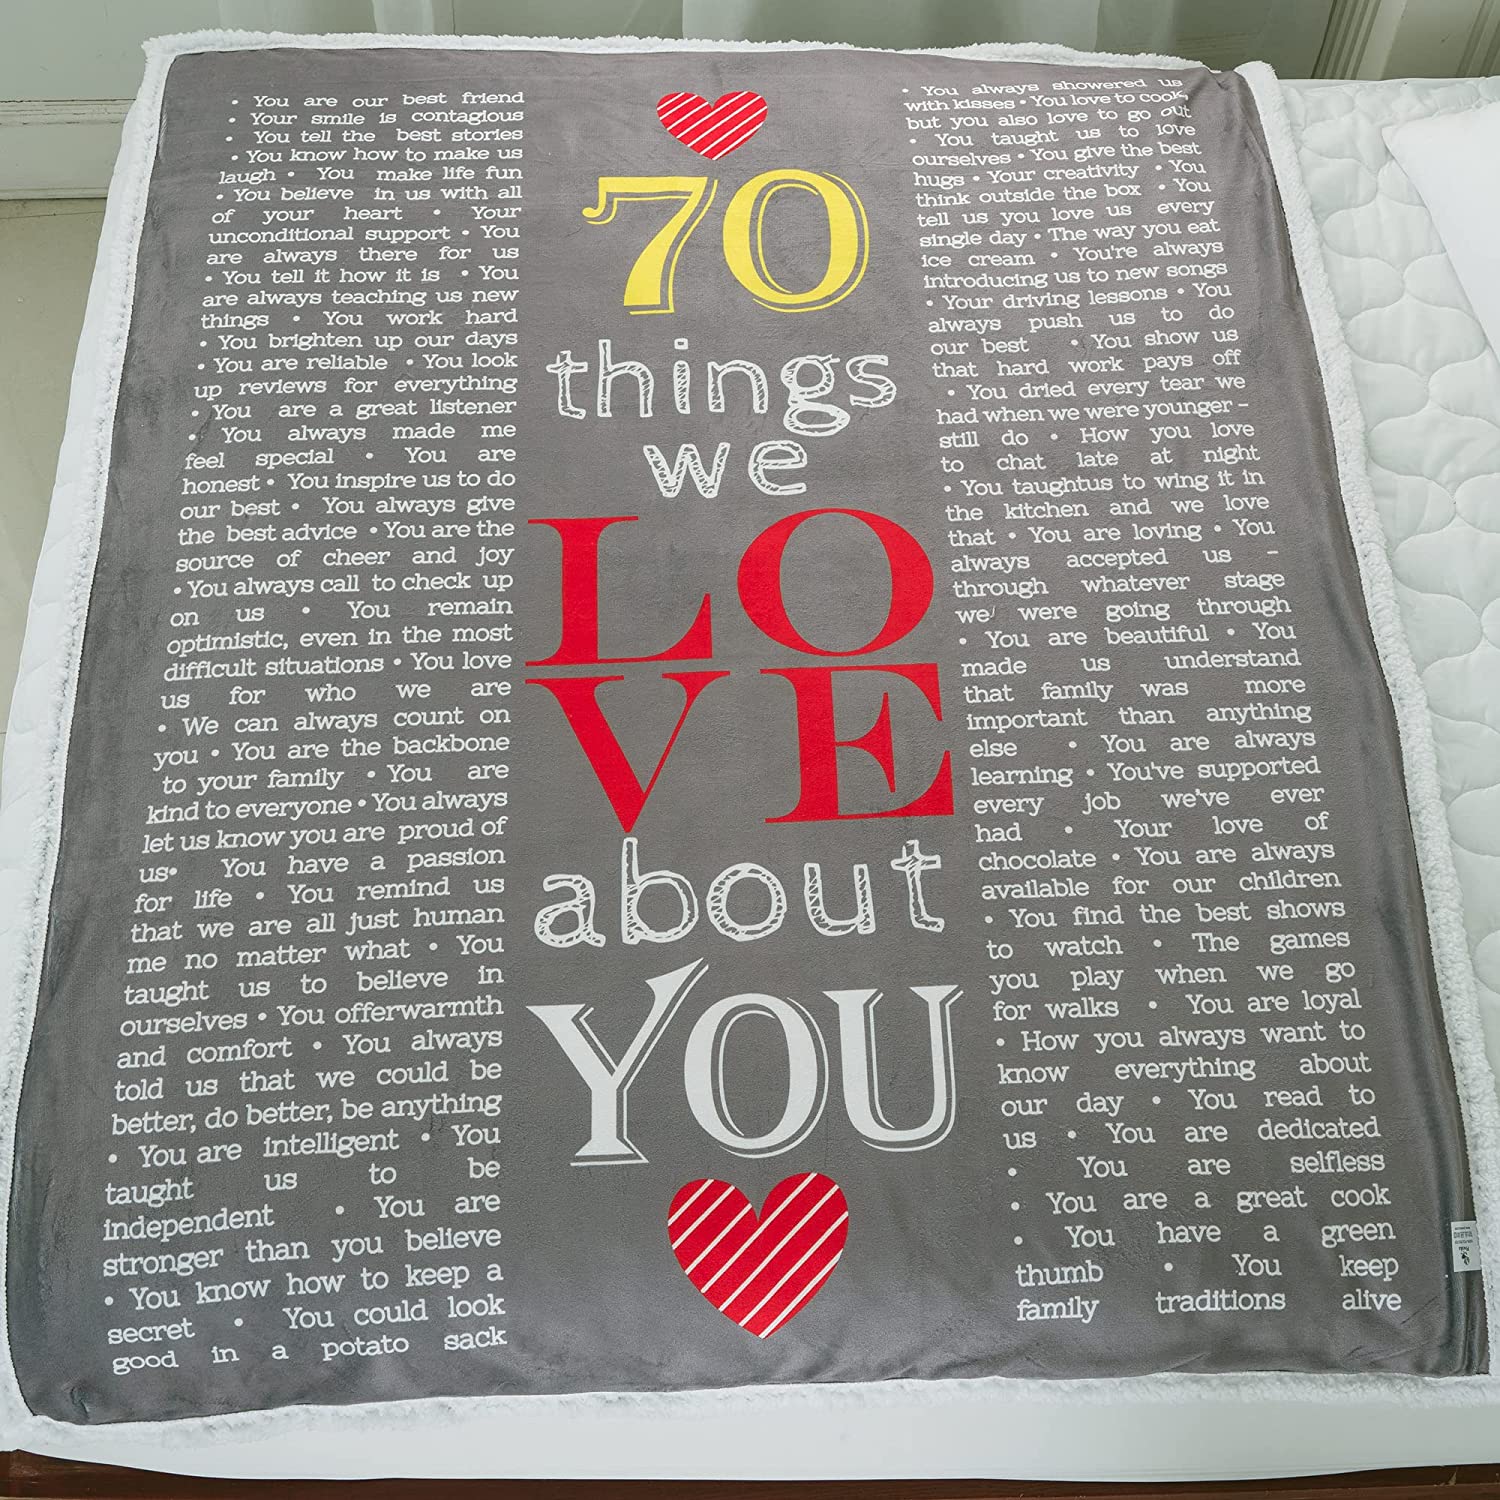 • You are our best friend
• Your smile is contagious
• You tell the best stories
• You know how to make us
laugh • You make life fun
• You believe in us with all
of your heart • Your
unconditional support • You
are always there for us
• You tell it how it is • You
are always teaching us new
things • You work hard
• You brighten up our days
• You are reliable • You look
up reviews for everything
• You are a great listener
• You always made me
feel special • You are
honest • You inspire us to do
our best • You always give
the best advice • You are the
source of cheer and joy
• You always call to check up
on us • You remain
optimistic, even in the most
difficult situations • You love
us for who we are
• We can always count on
you • You are the backbone
to your family • You are
kind to everyone • You always
let us know you are proud of
us• You have a passion
for life • You remind us
that we are all just human
me no matter what • You
taught us to believe in
ourselves • You offerwarmth
and comfort • You always
told us that we could be
better, do better, be anything
• You are intelligent • You
taught us to be
independent • You are
stronger than you believe
• You know how to keep a
secret • You could look
good in a potato sack
70
things
we
LO
VE
about
YOU
• You always showered us
with kisses • You love to cook,
but you also love to go out
• You taught us to love
ourselves • You give the best
hugs • Your creativity • You
think outside the box • You
tell us you love us every
single day • The way you eat
ice cream • You're always
introducing us to new songs
• Your driving lessons • You
always push us to do
our best • You show us
that hard work pays off
• You dried every tear we
had when we were younger –
still do • How you love
to chat late at night
• You taughtus to wing it in
the kitchen and we love
that • You are loving • You
always accepted us –
through whatever stage
we' were going through
• You are beautiful • You
made us understand
that family was more
important than anything
else • You are always
learning • You've supported
every job we've ever
had • Your love of
chocolate • You are always
available for our children
• You find the best shows
to watch • The games
you play when we go
for walks • You are loyal
• How you always want to
know everything about
our day • You read to
us • You are dedicated
• You are selfless
• You are a great cook
• You have a green
thumb • You keep
family traditions alive